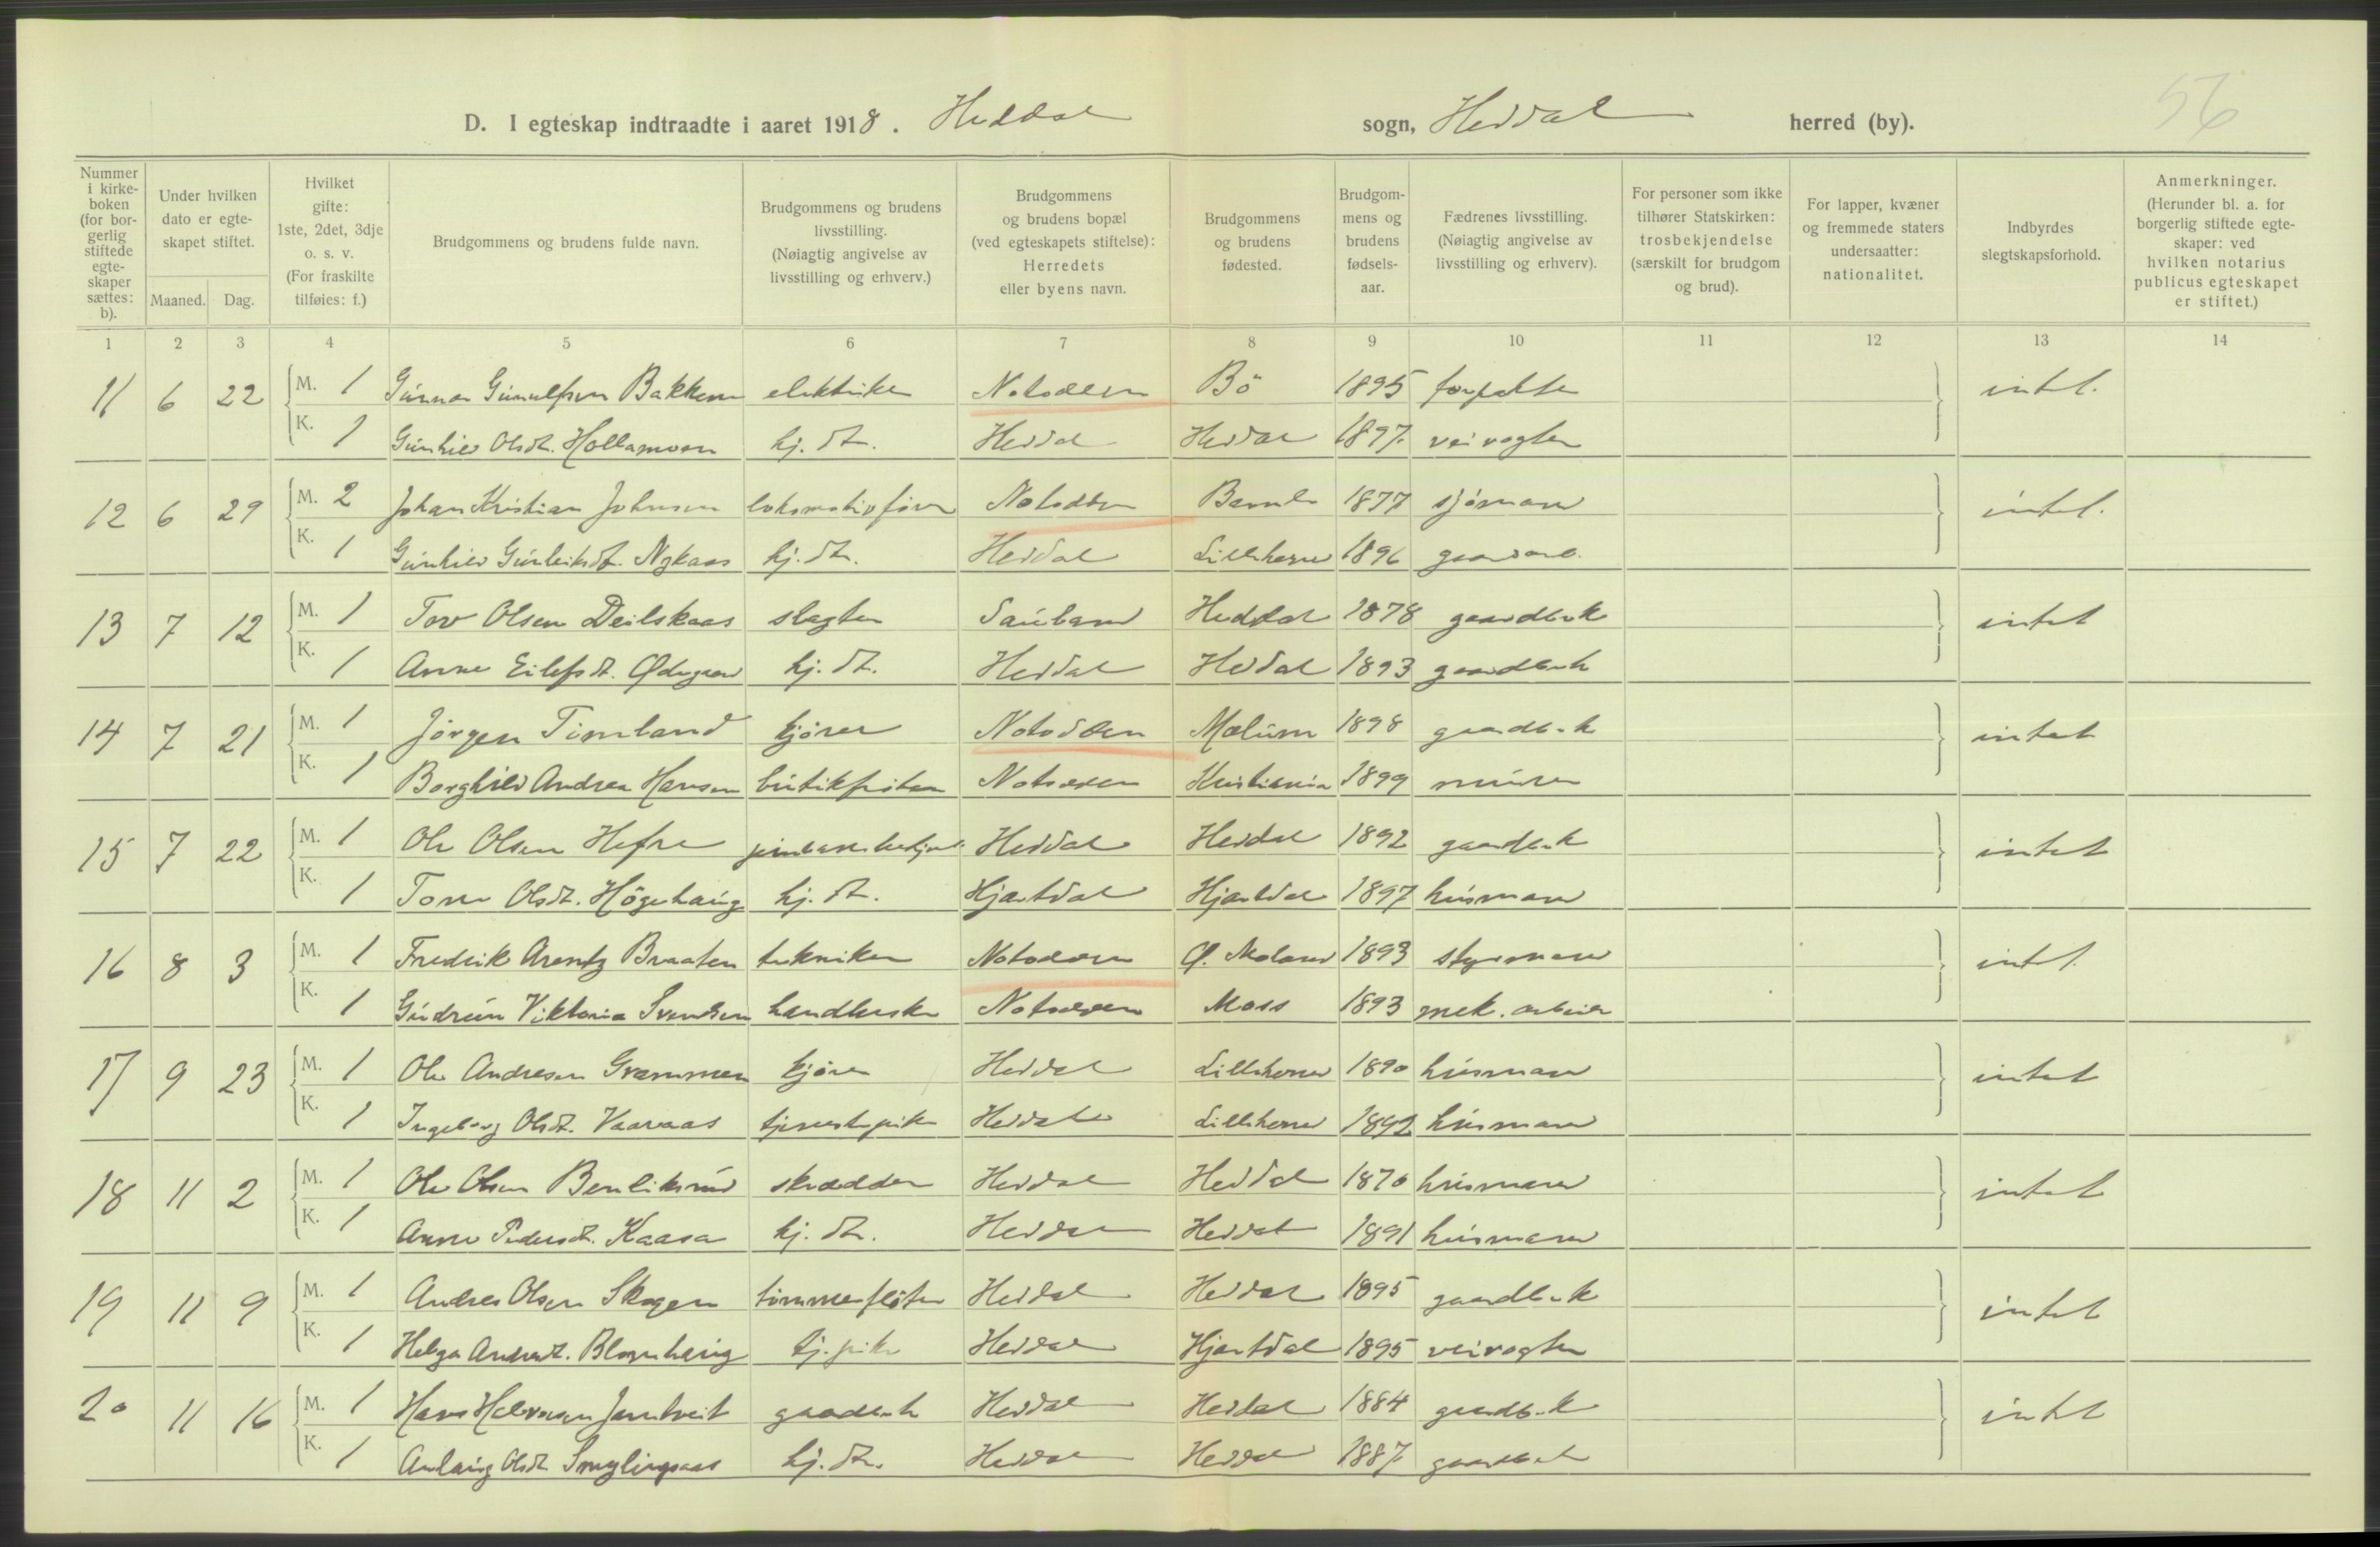 56
D. I egteskap indtraadte i aaret 1918. Heddal sogn, Heddal herred (by).
Nummer i kirkeboken (for borgerlig stiftede egteskaper sættes: b).
Under hvilken dato er egteskapet stiftet.
Maaned. Dag.
Hvilket gifte: 1ste, 2det, 3dje o. s. v. (For fraskilte tilføies: f.)
Brudgommens og brudens fulde navn.
Brudgommens og brudens livsstilling. (Nøiagtig angivelse av livsstilling og erhverv.)
Brudgommens og brudens bopæl (ved egteskapets stiftelse): Herredets eller byens navn.
Brudgommens og brudens fødested.
Brudgommens og brudens fødselsaar.
Fædrenes livsstilling. (Nøiagtig angivelse av livsstilling og erhverv).
For personer som ikke tilhører Statskirken: trosbekjendelse (særskilt for brudgom og brud).
For lapper, kvæner og fremmede staters undersaatter: nationalitet.
Indbyrdes slegtskapsforhold.
Anmerkninger. (Herunder bl. a. for borgerlig stiftede egteskaper: ved hvilken notarius publicus egteskapet er stiftet.)
1 2 3 4 5 6 7 8 9 10 11 12 13 14
11 6 22 M. 1 Gunnar Gunulfsen Bakken elektriker Notodden Bö 1895 forpakter intet.
K. 1 Gunhild Olsdt. Hollamoen hj. dt. Heddal Heddal 1897 veivogter
12 6 29 M. 2 Johan Kristian Johnsen lokomotivfører Notodden Bamle 1877 sjömand intet.
K. 1 Gunhild Gunleiksdt. Nykaas hj. dt. Heddal Lilleherred 1896 gaardbr.
13 7 12 M. 1 Tov Olsen Deilskaas slagter Sauland Heddal 1878 gaardbruk intet
K. 1 Anne Eilefsdt. Ødegaard hj. dt. Heddal Heddal 1893 gaardbruk
14 7 21 M. 1 Jörgen Timland kjörer Notodden Mælum 1898 gaardbruk intet
K. 1 Borghild Andrea Hansen butikfröken Notodden Kristiania 1899 murer
15 7 22 M. 1 Ole Olsen Hefre Heddal Heddal 1892 gaardbruk intet
K. 1 Tone Olsdt. Högehaug hj. dt. Hjartdal Hjartdal 1897 husmand
16 8 3 M. 1 Fredrik Arentz Braaten tekniker Notodden Ø. Moland 1893 styrmand intet.
K. 1 Gudrun Viktoria Svendsen handlerske Notodden Moss 1893 mek. arbeider
17 9 23 M. 1 Ole Andresen Grammen kjörer Heddal Lilleherred 1890 husmand intet
K. 1 Ingeborg Olsdt. Vaaraas tjenestepike Heddal Lilleherred 1892 husmand
18 11 2 M. 1 Ole Olsen Benliksrud skrædder Heddal Heddal 1870 husmand intet
K. 1 Anne Pedersdt. Kaasa hj. dt. Heddal Heddal 1891 husmand
19 11 9 M. 1 Andres Olsen Skogen tömmerflöter Heddal Heddal 1895 gaardbruk intet
K. 1 Helga Andersdt. Blomhaug tj. pike Heddal Hjartdal 1895 veivogter
20 11 16 M. 1 Hans Halvorsen Jamtveit gaardbruk Heddal Heddal 1884 gaardbruk intet
K. 1 Anlaug Olsdt. hj. dt. Heddal Heddal 1887 gaardbruk